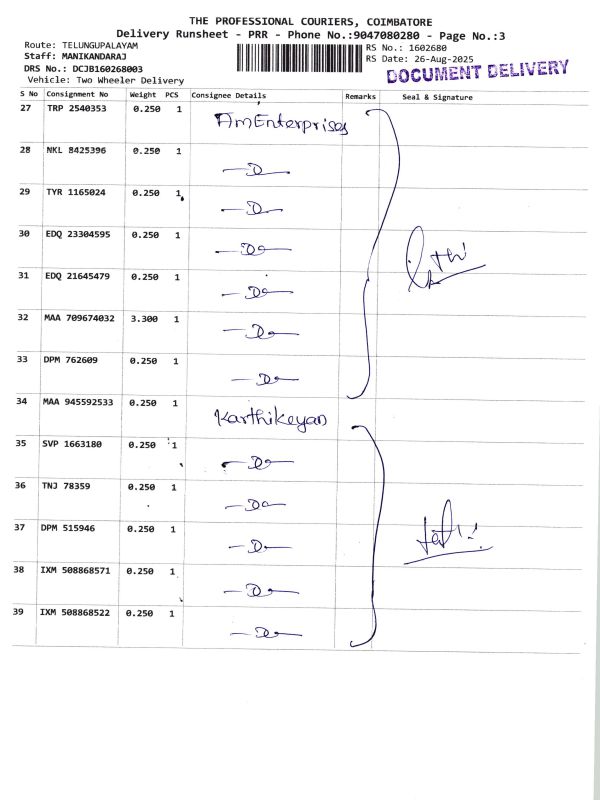 THE PROFESSIONAL COURIERS, COIMBATORE
Delivery Runsheet - PRR - Phone No.:9047080280 - Page No.:3
Route: TELUNGUPALAYAM
RS No.: 1602680
Staff: MANIKANDARAJ
RS Date: 26-Aug-2025
DRS No.: DCJB160268003
DOCUMENT DELIVERY
Vehicle: Two Wheeler Delivery
S No Consignment No Weight PCS Consignee Details Remarks Seal & Signature
27 TRP 2540353 0.250 1 Enterprises
28 NKL 8425396 0.250 1 -D-
29 TYR 1165024 0.250 1 -D-
30 EDQ 23304595 0.250 1 -Do-
31 EDQ 21645479 0.250 1 -Do-
32 MAA 709674032 3.300 1 -Do-
33 DPM 762609 0.250 1 -Do-
34 MAA 945592533 0.250 1 Karthikeyan
35 SVP 1663180 0.250 1 -Do-
36 TNJ 78359 0.250 1 -Do-
37 DPM 515946 0.250 1 -Do-
38 IXM 508868571 0.250 1 -Do-
39 IXM 508868522 0.250 1 -Do-